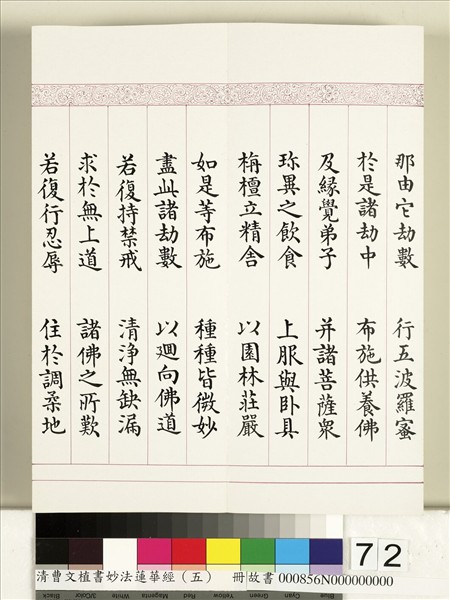 那由它劫數　行五波羅蜜
於是諸劫中　布施供養佛
及緣覺弟子　并諸菩薩眾
珎異之飲食　上服與卧具
栴檀立精舍　以園林莊嚴
如是等布施　種種皆微妙
盡此諸劫數　以迴向佛道
若復持禁戒　清淨無缺漏
求於無上道　諸佛之所歎
若復行忍辱　住於調柔地
72
清曹文植書妙法蓮華經（五）　冊故書 000856N000000000
Black 3/Color White Magenta Red Yellow Green Cyan Blue